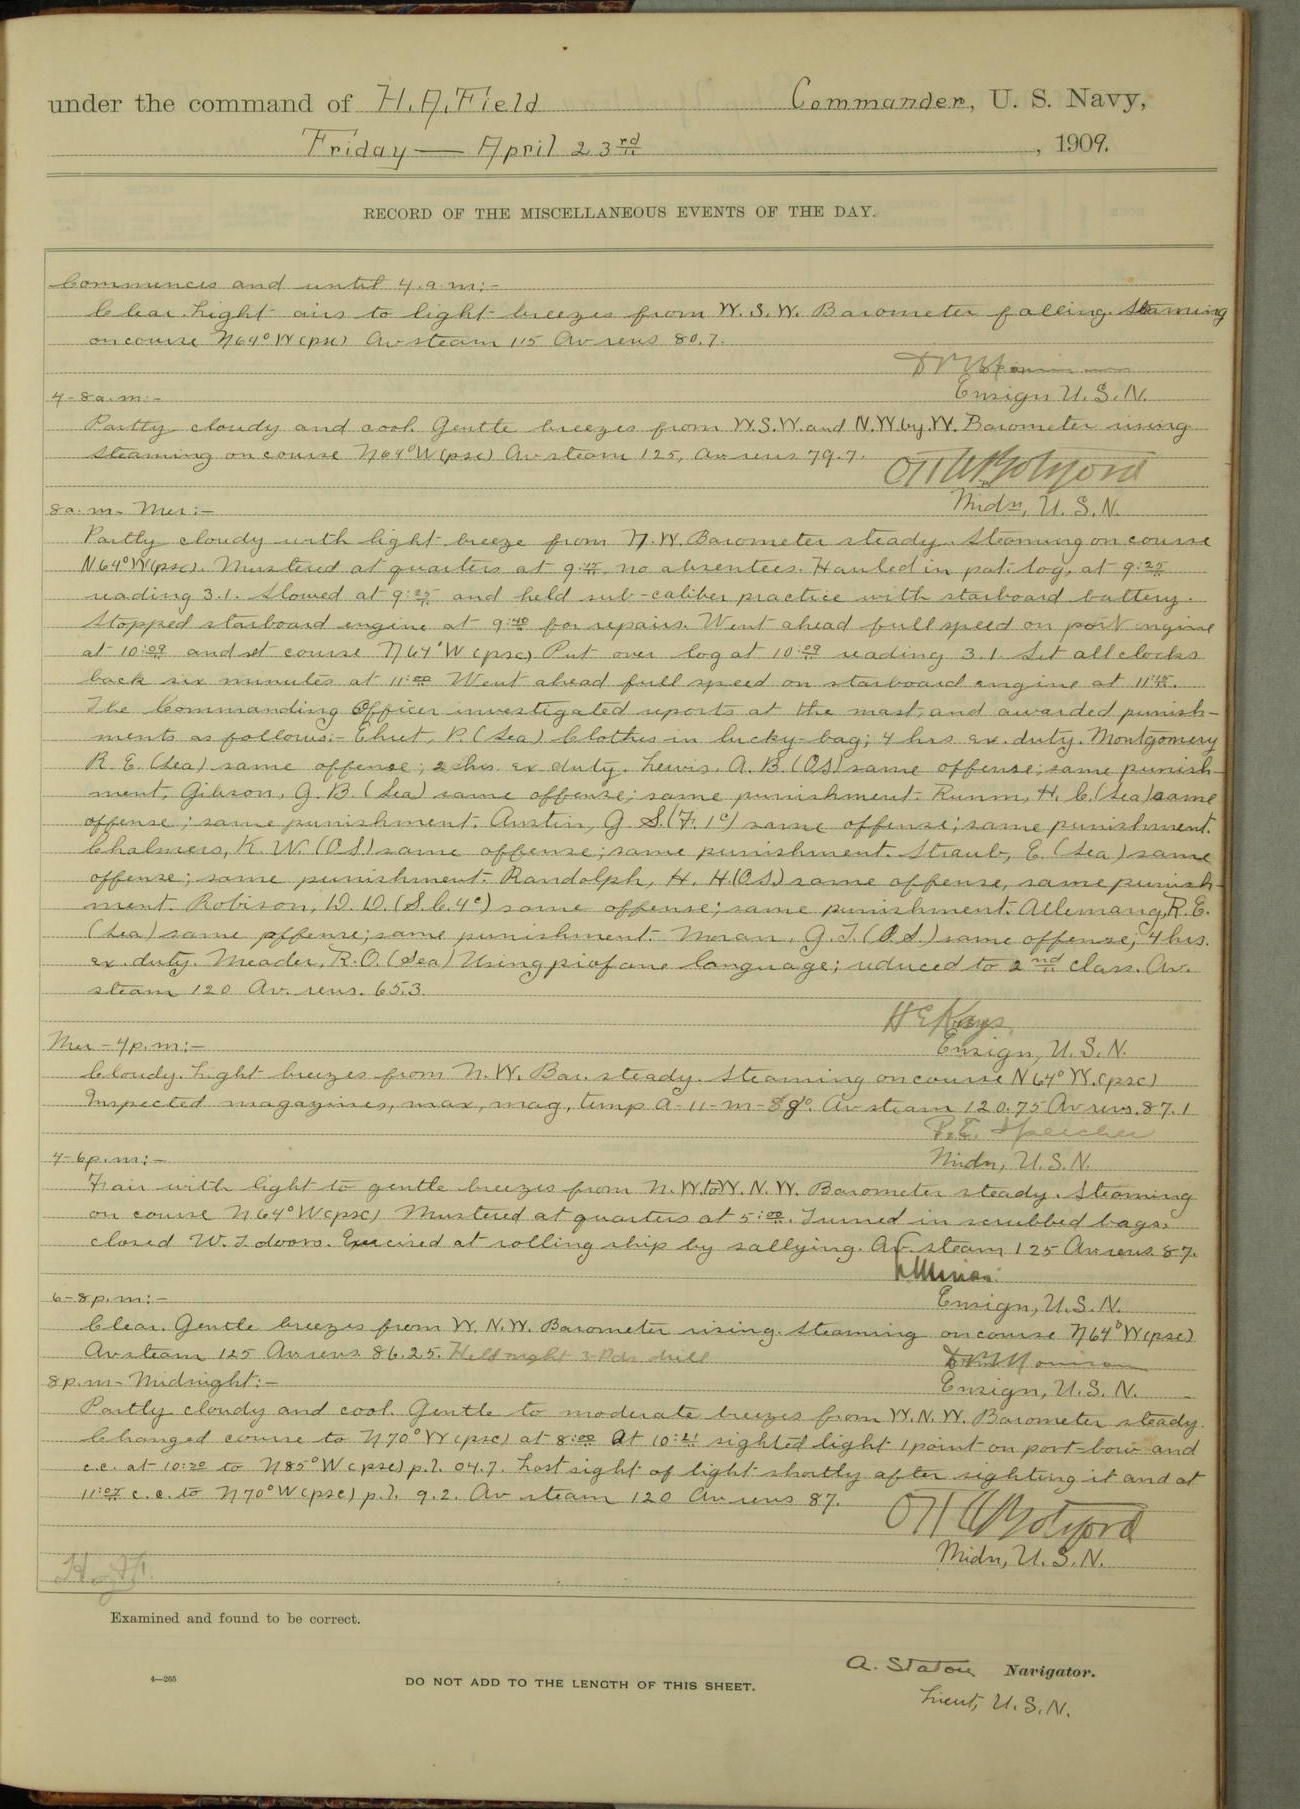 under the command of H. A. Field Commander, U. S. Navy,
Friday — April 23rd, 1909.
RECORD OF THE MISCELLANEOUS EVENTS OF THE DAY.
Commences and until 4. a. m:-
Clear. Light airs to light breezes from W. S. W. Barometer falling. Steaming
on course N 64° W (psc) Av steam 115 Av revs 80.7.
Ensign U. S. N.
4-8 a. m:-
Partly cloudy and cool. Gentle breezes from W. S. W. and N. W. by W. Barometer rising
steaming on course N 64° W (psc) Av steam 125, Av revs 79.7.
Midn, U. S. N.
8 a. m- Mer:-
Partly cloudy with light breeze from N. W. Barometer steady. Steaming on course
N 64° W (psc). Mustered at quarters at 9:15, no absentees. Hauled in pat. log, at 9:25
reading 3.1. Slowed at 9:25 and held sub-caliber practice with starboard battery.
Stopped starboard engine at 9:40 for repairs. Went ahead full speed on port engine
at 10:09 and set course N 64° W (psc) Put over log at 10:09 reading 3.1. Set all clocks
back six minutes at 11:00 Went ahead full speed on starboard engine at 11:15.
The Commanding Officer investigated reports at the mast, and awarded punish-
ments as follows:- Ehret, P. (Sea) Clothes in lucky-bag; 4 hrs ex. duty. Montgomery
R. E. (Sea) same offense; 2 hrs ex duty. Lewis, A. B. (OS) same offense; same punish-
ment, Gibson, G. B. (Sea) same offense; same punishment. Runm, H. C. (Sea) same
offense; same punishment. Austin, G. S. (F. 1c) same offense; same punishment.
Chalmers, K. W. (OS) same offense; same punishment. Straub, E. (Sea) same
offense; same punishment. Randolph, H. H (OS.) same offense, same punish-
ment. Robison, W. W. (S. C. 4c) same offense; same punishment. Allemang, R. E.
(Sea) same offense; same punishment. Moran, G. J. (O. S.) same offense; 4 hrs.
ex. duty. Meader, R. O. (Sea) Using profane language; reduced to 2nd class. Av.
steam 120 Av. revs. 65.3.
H E Kays
Ensign, U. S. N.
Mer - 4 p. m:-
Cloudy. Light breezes from N. W. Bar. steady. Steaming on course N 64° W. (psc)
Inspected magazines, max, mag, temp A-11-m- Av steam 120.75 Av revs. 87.1
P. E. Speicher
Midn, U. S. N.
4-6 p. m:-
Fair with light to gentle breezes from N. W. to W. N. W. Barometer steady. Steaming
on course N 64° W (psc) Mustered at quarters at 5:00. Turned in scrubbed bags,
closed W. T. doors. Exercised at rolling ship by sallying. Av. steam 125 Av revs. 87.
Ensign, U. S. N.
6-8 p. m:-
Clear. Gentle breezes from W. N. W. Barometer rising. Steaming on course N 64° W (psc)
Av steam 125 Av revs. 86.25. Held night 3-Pdr drill
Ensign, U. S. N.
8 p. m- Midnight:-
Partly cloudy and cool. Gentle to moderate breezes from W. N. W. Barometer steady.
Changed course to N 70° W (psc) at 8:00 At 10:21 sighted light 1 point on port-bow and
c. c. at 10:30 to N 85° W (psc) p. l. 04.7. Lost sight of light shortly after sighting it and at
11:05 c. c. to N 70° W (psc) p. l. 9.2. Av steam 120 Av revs 87.
Midn, U. S. N.
Examined and found to be correct.
A. Staton Navigator.
4—265
DO NOT ADD TO THE LENGTH OF THIS SHEET.
Lieut, U. S. N.